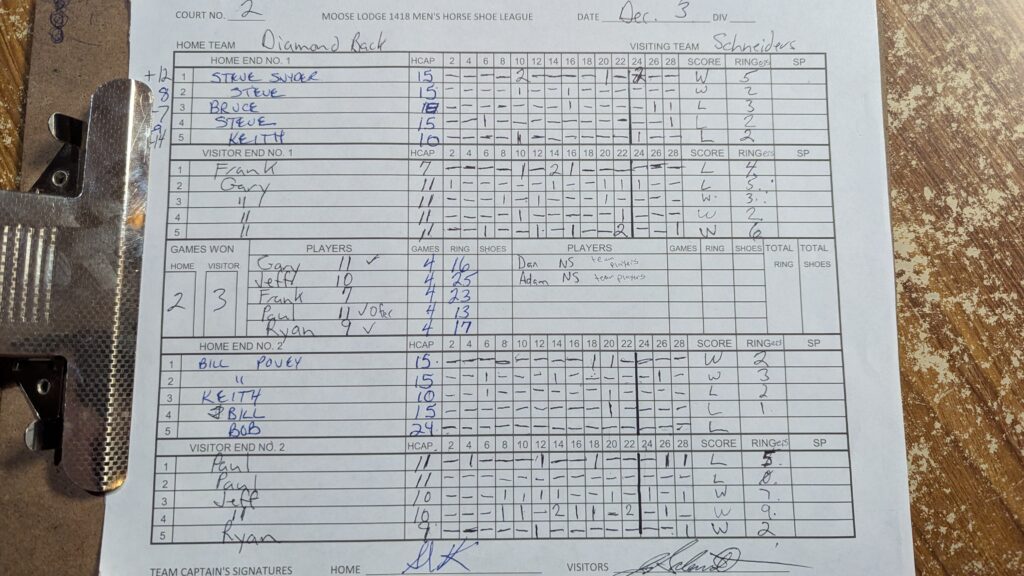 COURT NO. 2 MOOSE LODGE 1418 MEN'S HORSE SHOE LEAGUE DATE Dec. 3 DIV
HOME TEAM Diamond Back VISITING TEAM Schneiders
HOME END NO. 1 HCAP 2 4 6 8 10 12 14 16 18 20 22 24 26 28 SCORE RINGers SP
+12 1 STEVE SNYDER 15 – – – – 2 – – – – 1 – 2 – – W 5
8 2 STEVE 15 – – – – 1 – – 1 – – – – – – W 2
7 3 BRUCE – – – – – – – 1 – – – – 1 1 L 3
4 STEVE 15 – – 1 – – – – – – – – – – 1 L 2
5 KEITH 10 – – – – 1 – – – – – – 1 – – L 2
VISITOR END NO. 1 HCAP 2 4 6 8 10 12 14 16 18 20 22 24 26 28 SCORE RINGers SP
1 Frank 7 – – – – 1 – 2 1 – – – – – – L 4
2 Gary 11 1 – – – – – 1 – – 1 1 1 – – L 5
3 " 11 – – – 1 – 1 – – – 1 – – – – W 3
4 " 11 – – – – 1 – – – – – 1 – – – W 2
5 " 11 – – 1 – – 1 – 1 – – 2 – – 1 W 6
GAMES WON PLAYERS GAMES RING SHOES PLAYERS GAMES RING SHOES TOTAL TOTAL
HOME VISITOR RING SHOES
2 3
Gary 11 ✓ 4 16 Dan NS team players
Jeff 10 4 25 Adam NS team players
Frank 7 4 23
Paul 11 ✓ 4 13
Ryan 9 ✓ 4 17
HOME END NO. 2 HCAP 2 4 6 8 10 12 14 16 18 20 22 24 26 28 SCORE RINGers SP
1 BILL POVEY 15 – – – – – – – – 1 1 – – – – W 2
2 " 15 – – 1 – – – 1 – – – – – 1 – W 3
3 KEITH 10 L 2
4 BILL 15 – – – – – – – – – 1 – – – – L 1
5 BOB 24 – – – – – – – – – – – – – – L
VISITOR END NO. 2 HCAP 2 4 6 8 10 12 14 16 18 20 22 24 26 28 SCORE RINGers SP
1 Paul 11 – 1 – – – 1 – – 1 – – – 1 1 L 5
2 Paul 11 – – – – – – – – – – – – – – L 0
3 Jeff 10 – – – 1 1 1 1 1 – – – 1 – 1 W 7
4 " 10 – – – 1 1 – 2 1 1 – 2 – 1 – W 9
5 Ryan 9 – – – – – 1 – – – – – – – 1 W 2
TEAM CAPTAIN'S SIGNATURES HOME VISITORS